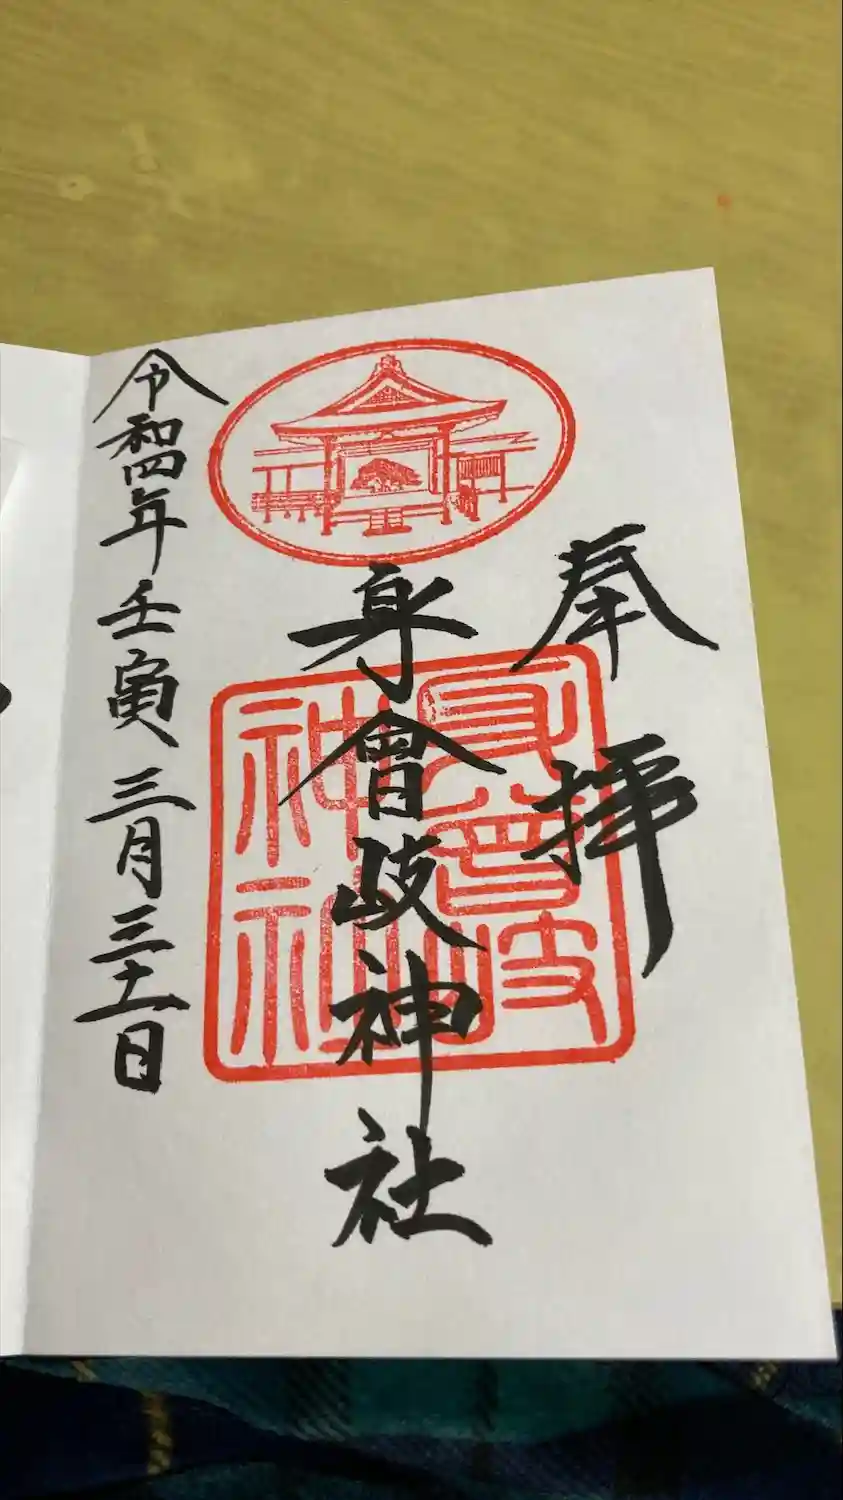 奉拝
身曾岐神社
身曾岐神社
令和四年壬寅三月三十一日